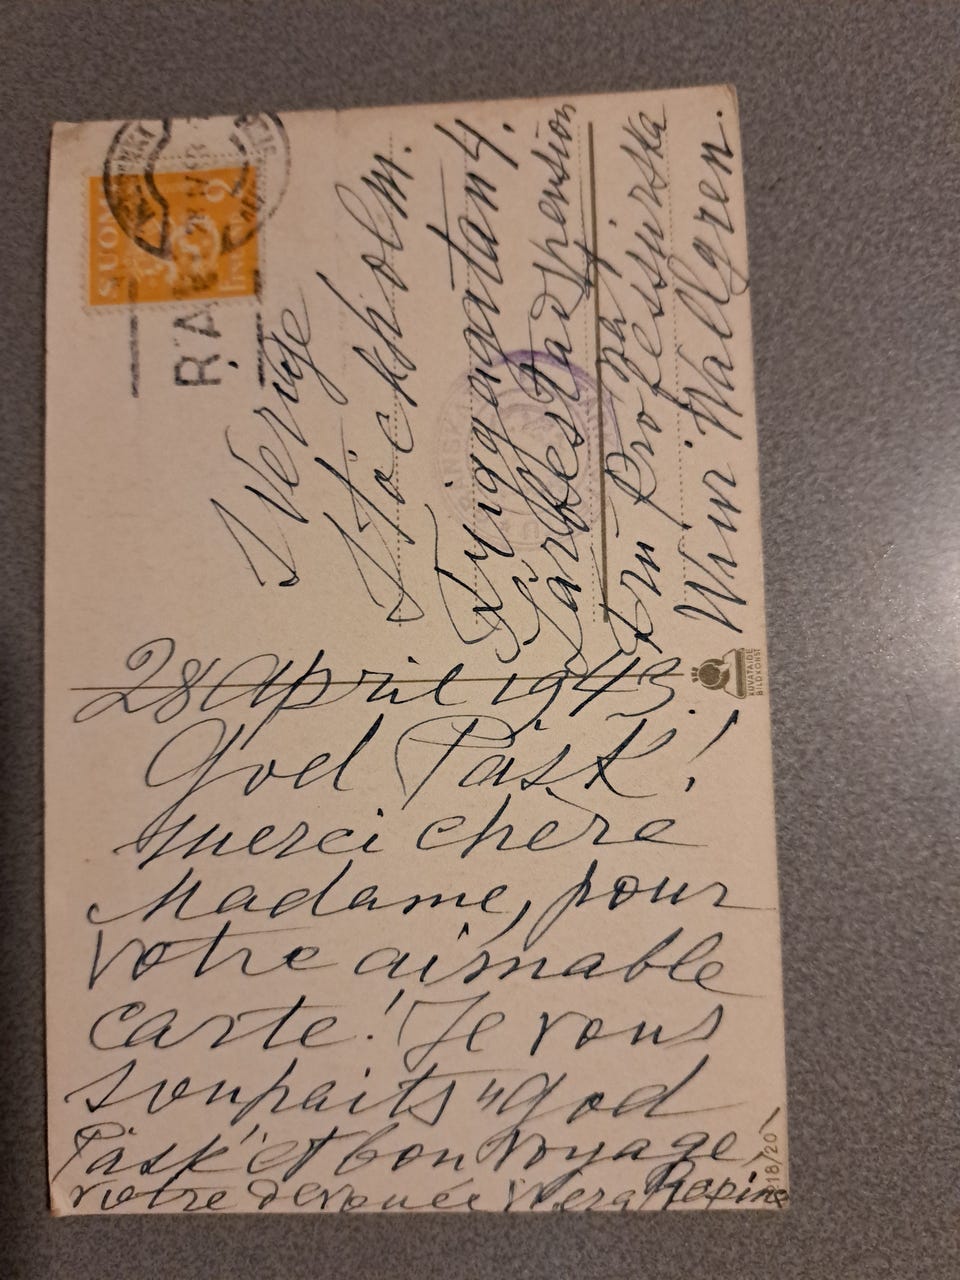 28 April 1943.
God Påsk!
merci chère
Madame, pour
votre aimable
carte! Je vous
souhaits "God
Påsk" et bon voyage,
votre dévouée Wera Repine
Sverige
Stockholm.
Tryggagatan 4.
pension
Fru Professorska
Wiwi Wallgren.
SUOMI
KUVATAIDE
BILDKONST
18/20